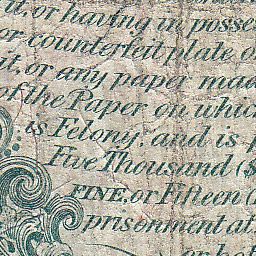 it, or having in posses
or counterfeit plate o
it, or any paper mad
of the Paper on which
is Felony, and is p
Five Thousand (
FINE, or Fifteen (
prisonment at
or bot